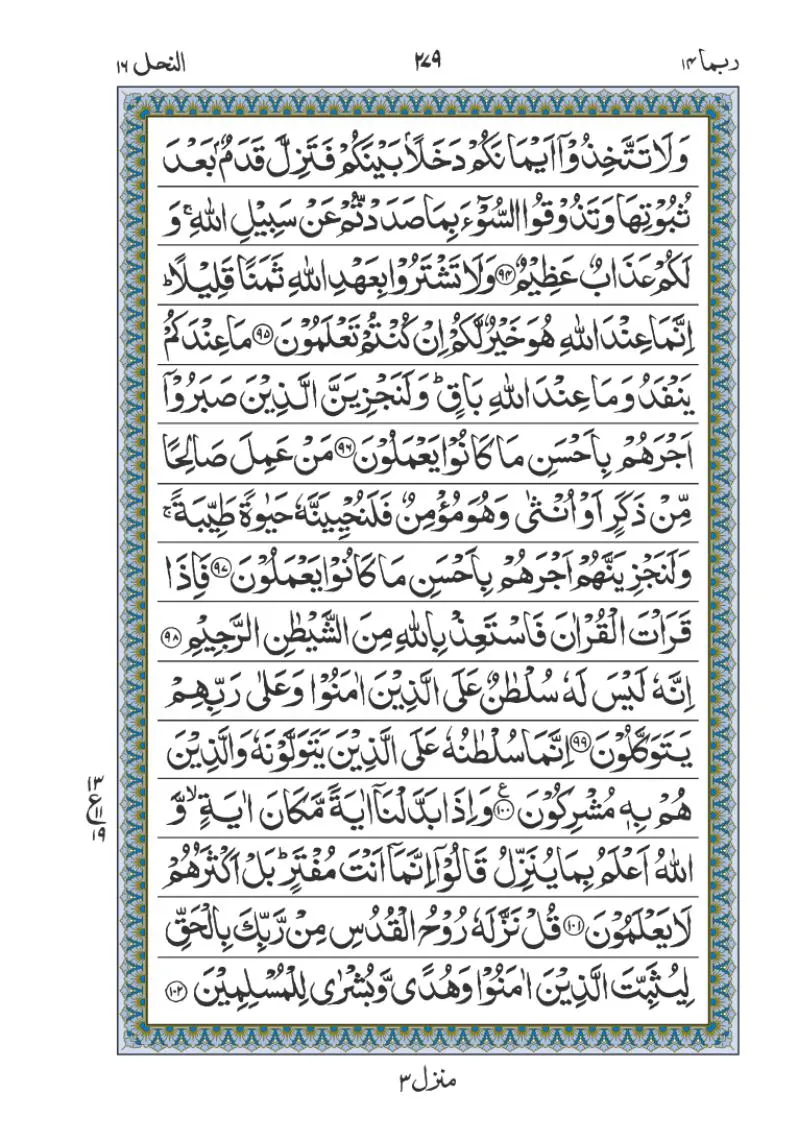 ربما ۱۴ ۲۷۹ النحل ۱۶
وَلَا تَتَّخِذُوْۤا اَيْمَانَكُمْ دَخَلًۢا بَيْنَكُمْ فَتَزِلَّ قَدَمٌۢ بَعْدَ
ثُبُوْتِهَا وَتَذُوْقُوا السُّوْٓءَ بِمَا صَدَدْتُّمْ عَنْ سَبِيْلِ اللّٰهِ ۚ وَ
لَكُمْ عَذَابٌ عَظِيْمٌ ﴿۹۴﴾ وَلَا تَشْتَرُوْا بِعَهْدِ اللّٰهِ ثَمَنًا قَلِيْلًا ؕ
اِنَّمَا عِنْدَ اللّٰهِ هُوَ خَيْرٌ لَّكُمْ اِنْ كُنْتُمْ تَعْلَمُوْنَ ﴿۹۵﴾ مَا عِنْدَكُمْ
يَنْفَدُ وَمَا عِنْدَ اللّٰهِ بَاقٍ ؕ وَلَنَجْزِيَنَّ الَّذِيْنَ صَبَرُوْۤا
اَجْرَهُمْ بِاَحْسَنِ مَا كَانُوْا يَعْمَلُوْنَ ﴿۹۶﴾ مَنْ عَمِلَ صَالِحًا
مِّنْ ذَكَرٍ اَوْ اُنْثٰى وَهُوَ مُؤْمِنٌ فَلَنُحْيِيَنَّهٗ حَيٰوةً طَيِّبَةً ۚ
وَلَنَجْزِيَنَّهُمْ اَجْرَهُمْ بِاَحْسَنِ مَا كَانُوْا يَعْمَلُوْنَ ﴿۹۷﴾ فَاِذَا
قَرَاْتَ الْقُرْاٰنَ فَاسْتَعِذْ بِاللّٰهِ مِنَ الشَّيْطٰنِ الرَّجِيْمِ ﴿۹۸﴾
اِنَّهٗ لَيْسَ لَهٗ سُلْطٰنٌ عَلَى الَّذِيْنَ اٰمَنُوْا وَعَلٰى رَبِّهِمْ
يَتَوَكَّلُوْنَ ﴿۹۹﴾ اِنَّمَا سُلْطٰنُهٗ عَلَى الَّذِيْنَ يَتَوَلَّوْنَهٗ وَالَّذِيْنَ
هُمْ بِهٖ مُشْرِكُوْنَ ﴿۱۰۰﴾ ع وَاِذَا بَدَّلْنَاۤ اٰيَةً مَّكَانَ اٰيَةٍ ۙ وَّ
اللّٰهُ اَعْلَمُ بِمَا يُنَزِّلُ قَالُوْۤا اِنَّمَاۤ اَنْتَ مُفْتَرٍ ؕ بَلْ اَكْثَرُهُمْ
لَا يَعْلَمُوْنَ ﴿۱۰۱﴾ قُلْ نَزَّلَهٗ رُوْحُ الْقُدُسِ مِنْ رَّبِّكَ بِالْحَقِّ
لِيُثَبِّتَ الَّذِيْنَ اٰمَنُوْا وَهُدًى وَّبُشْرٰى لِلْمُسْلِمِيْنَ ﴿۱۰۲﴾
۱۳
ع
۱۱
۱۹
منزل ۳